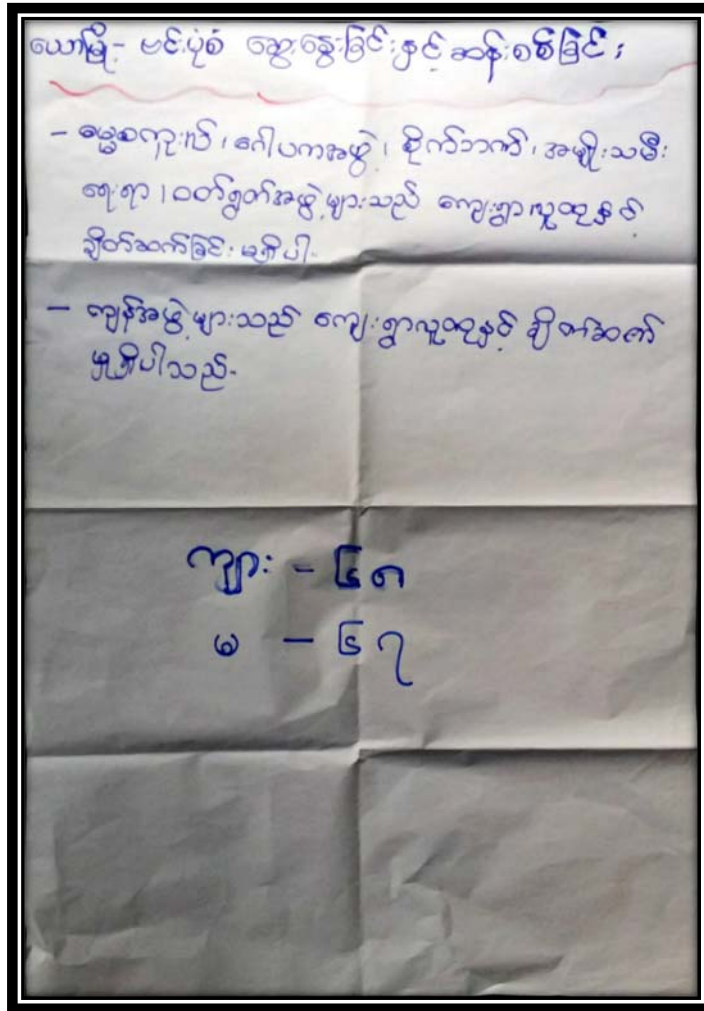 ယောမြို - ဗင်းပုံစံ ဆွေးနွေးခြင်းနှင့် ဆန်းစစ်ခြင်း
- ဓမ္မစကူးလ်၊ ဂေါပကအဖွဲ့၊ စိုက်ဘဏ်၊ အမျိုးသမီး
ရေးရာ၊ ဝတ်ရွတ်အဖွဲ့များသည် ကျေးရွာလူထုနှင့်
ချိတ်ဆက်ခြင်းမရှိပါ-
- ကျန်အဖွဲ့များသည် ကျေးရွာလူထုနှင့် ချိတ်ဆက်
မှုရှိပါသည်-
ကျား - ၆၈
မ - ၆၇